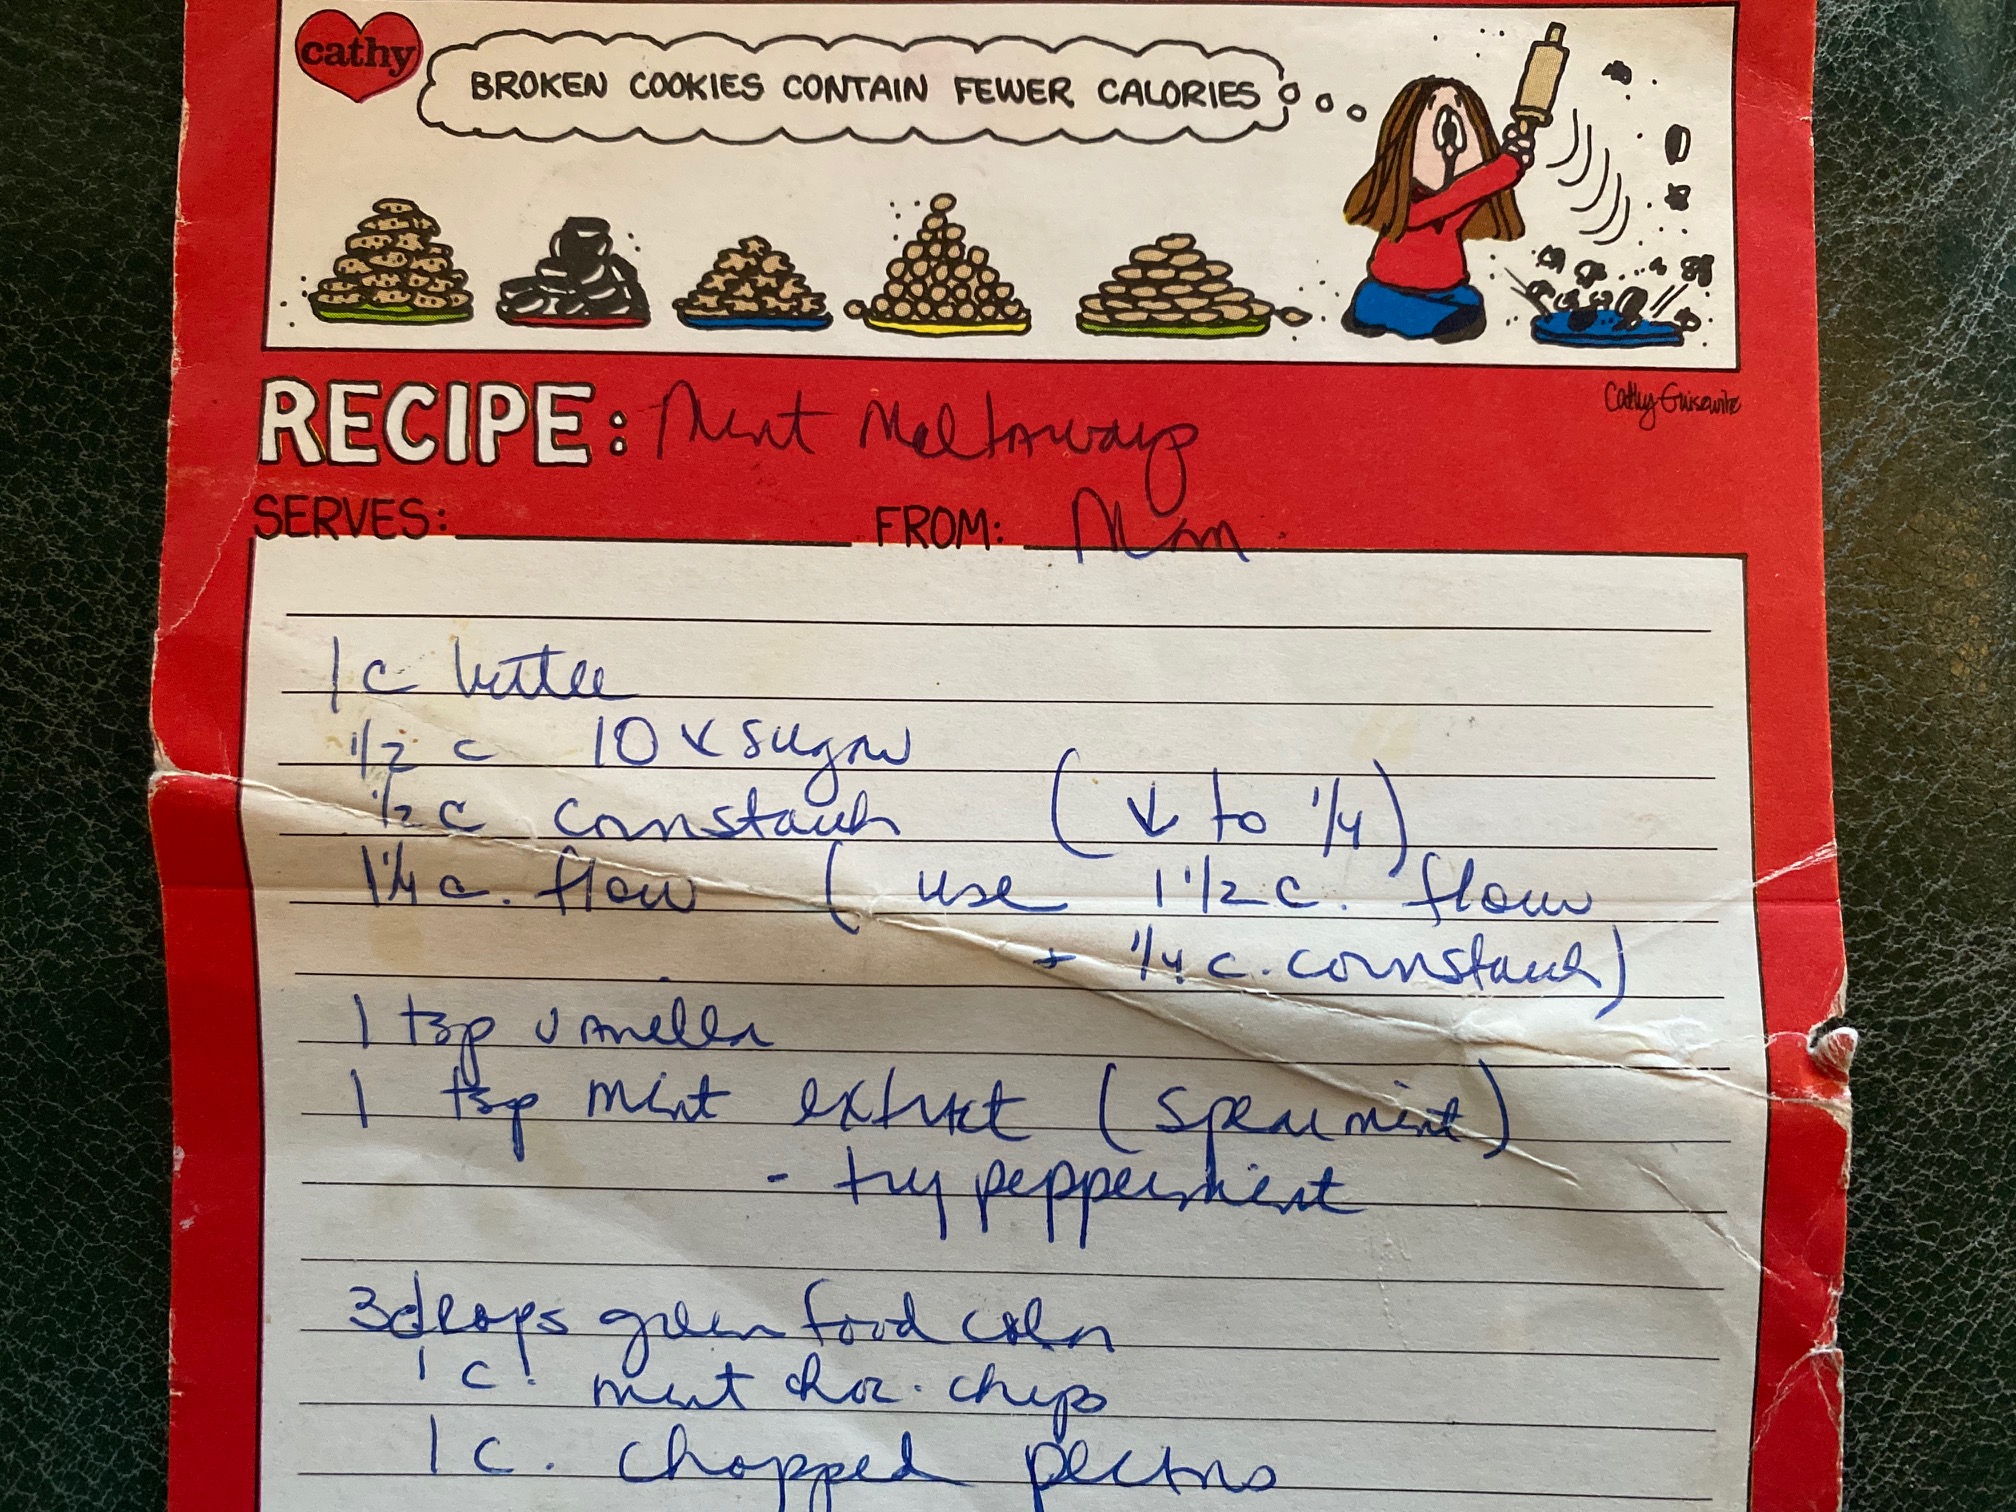 cathy
BROKEN COOKIES CONTAIN FEWER CALORIES
Cathy Guisewite
RECIPE: Mint Meltaways
SERVES: FROM: Mom
1 c butter
1/2 c 10 x sugar
1/2 c cornstarch (↓ to 1/4)
1 1/4 c. flour (use 1 1/2 c. flour
+ 1/4 c. cornstarch)
1 tsp vanilla
1 tsp mint extract (spearmint)
- try peppermint
3 drops green food color
1 c. mint choc. chips
1 c. chopped pecans